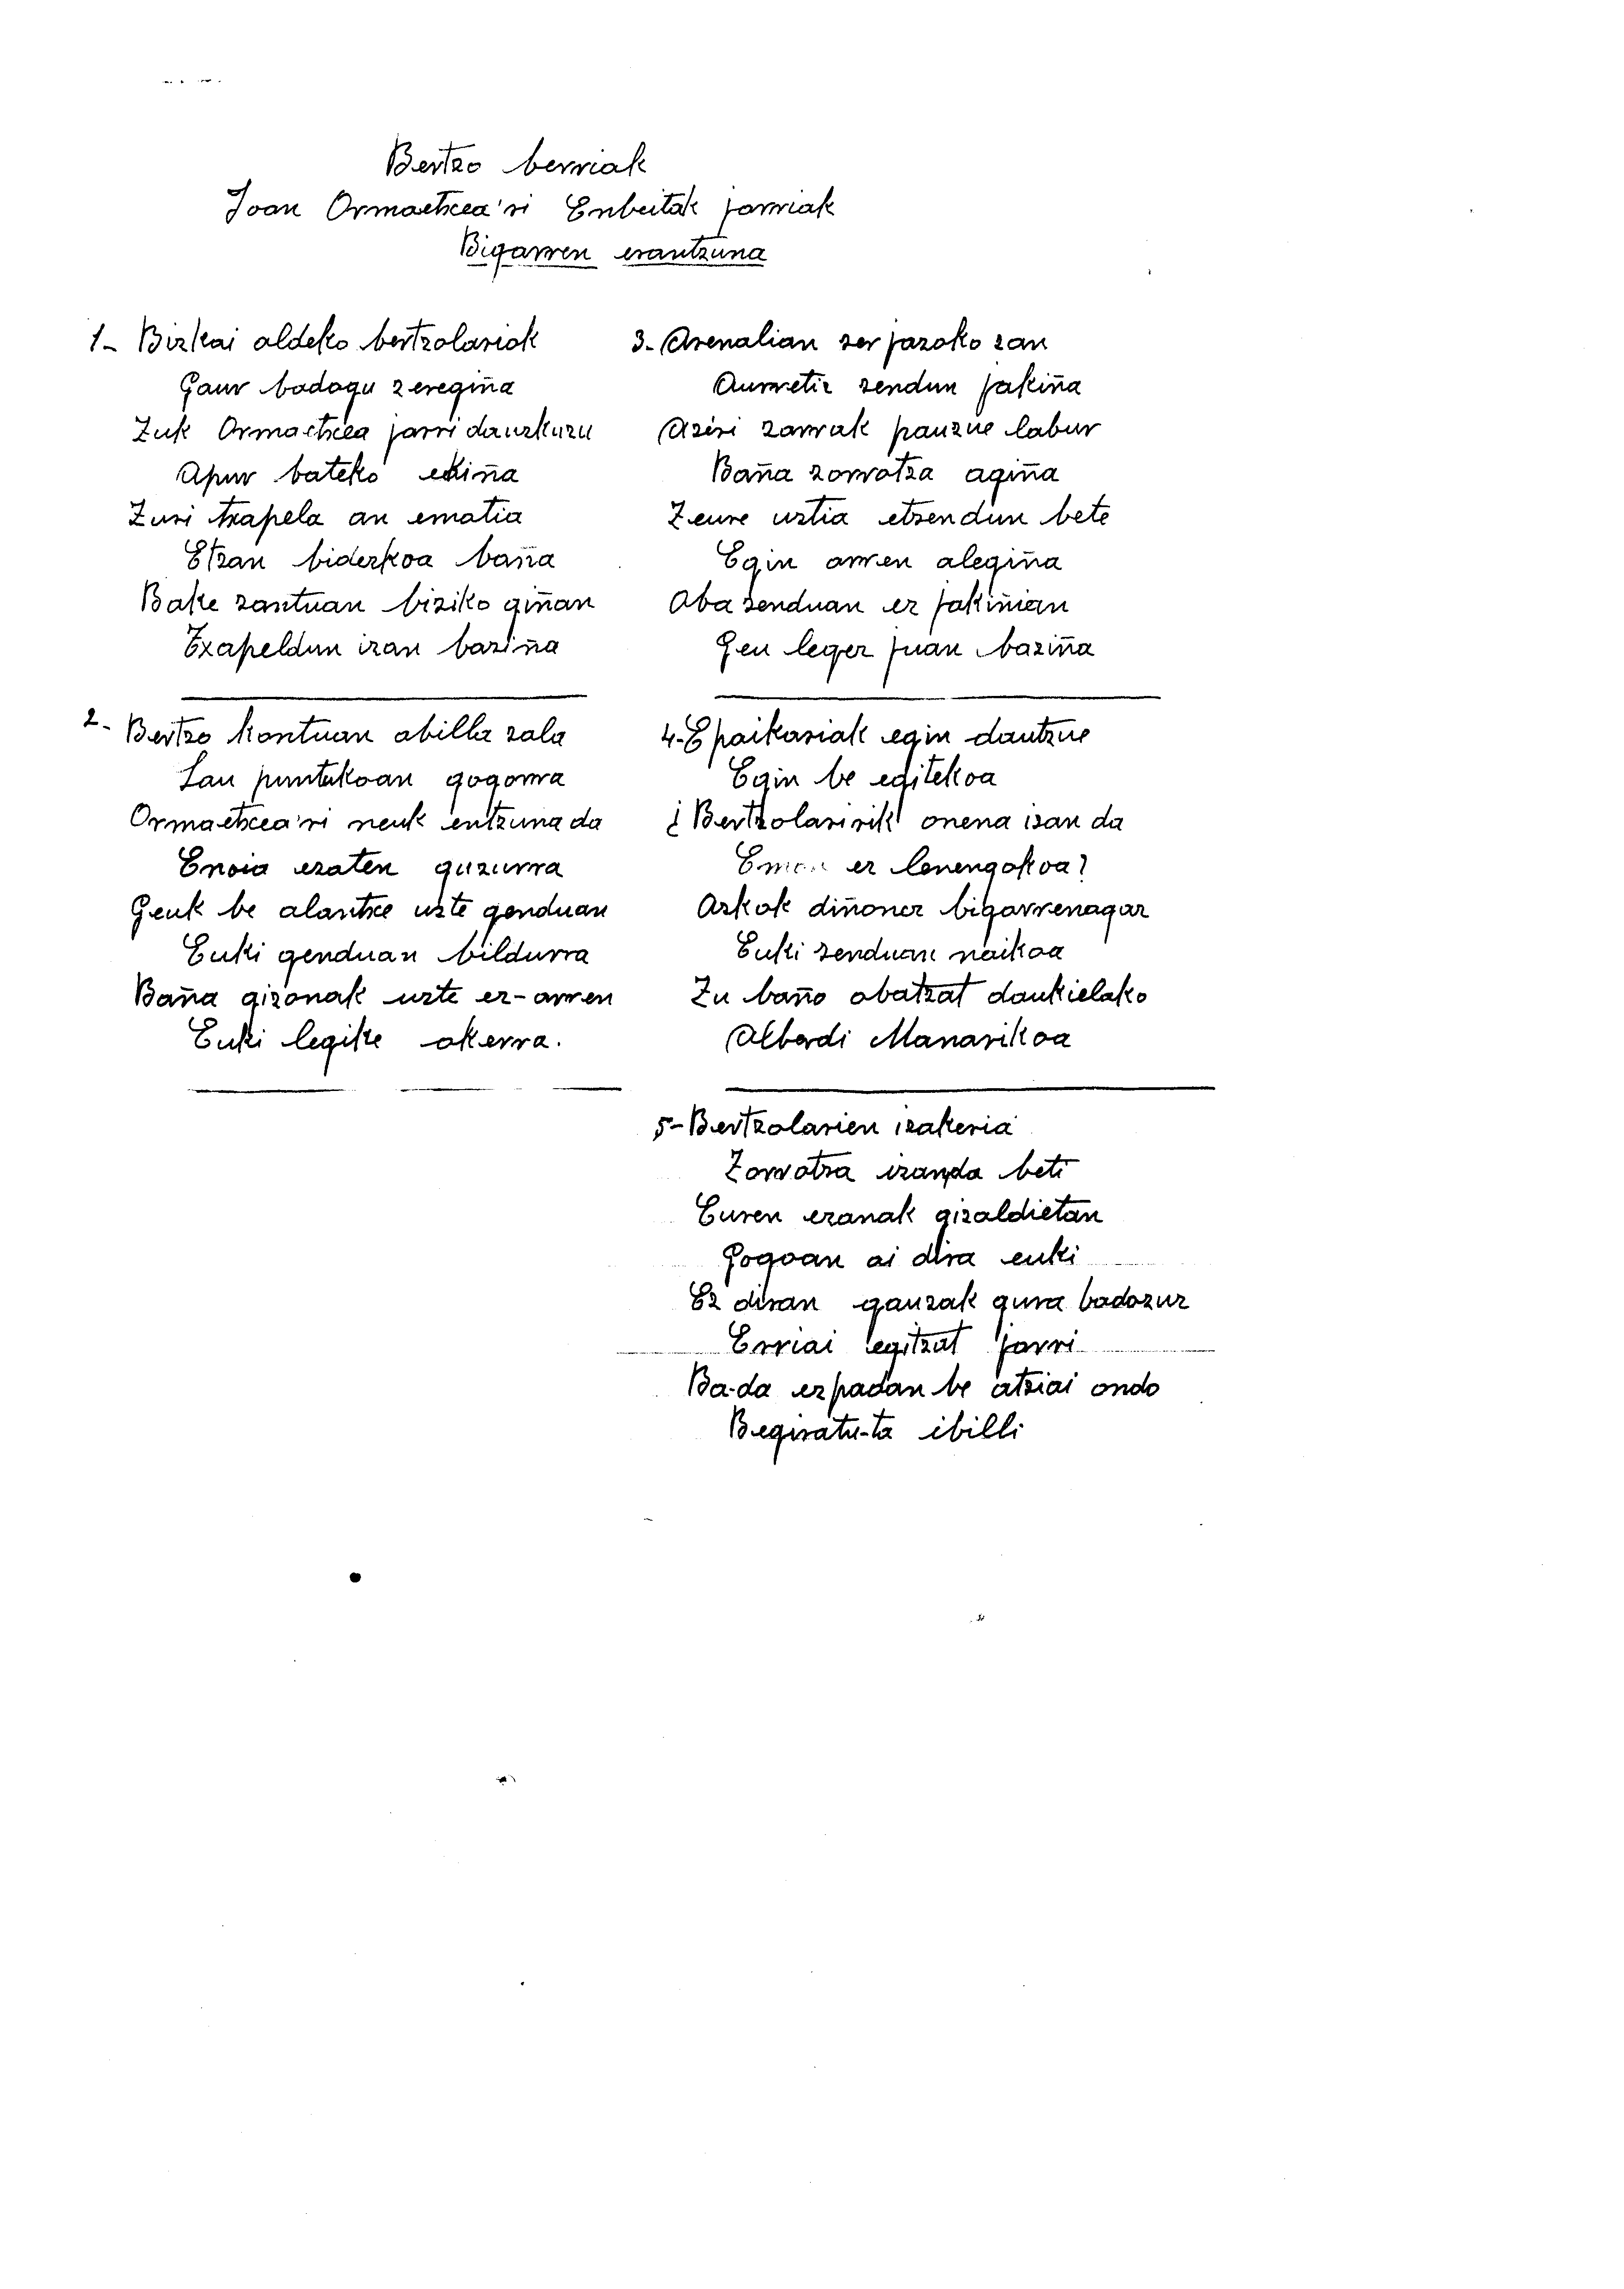 Bertzo berriak
Joan Ormaetxea'ri Enbeitak jarriak
Bigarren erantzuna
1- Bizkai aldeko bertzolariok
Gaur badogu zeregiña
Zuk Ormaetxea jarri dauzkuzu
Apur bateko ekiña
Zuri txapela an ematia
Etzan biderkoa baña
Bake zantuan biziko giñan
Txapeldun izan baziña
2- Bertzo kontuan abilla zala
Lan puntukoan gogorra
Ormaetxea'ri neuk entzuna da
Enoia ezaten guzurra
Geuk be alantxe uzte genduan
Euki genduan bildurra
Baña gizonak uzte ez-arren
Euki legike okerra.
3- Arenalian zer jazoko zan
Aurretiz zendun jakiña
Azeri zarrak pauzue labur
Baña zorrotza agiña
Zeure uztia etzendun bete
Egin arren alegiña
Aba zenduan ez jakiñian
Geu legez juan baziña
4- Epaikariak egin dautzue
Egin be egitekoa
¿Bertzolaririk onena izan da
ez lenengokoa?
Azkok diñonez bigarrenagaz
Euki zenduan naikoa
Zu baño obatzat daukielako
Alberdi Mañarikoa
5- Bertzolarien izakeria
Zorrotza izanda beti
Euren ezanak gizaldietan
Gogoan ai dira euki
Ez diran gauzak gura badozuz
Erriai legitzat jarri
Ba-da ezpadan be atziai ondo
Begiratu-ta ibilli